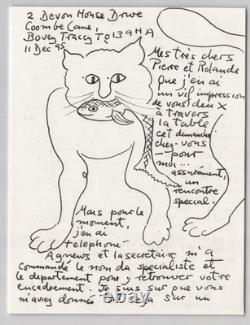 2 Devon House Drive
Coombe Lane,
Bovey Tracey TQ13 9HA
11 Dec 95
Mes très chers
Pierre et Rolande
que j'en ai
un vif impression
de vous deux
à travers
la table
cet dimanche
chez-vous
pour
moi...
assurément,
un
rencontre
special.
Mais pour le
moment,
j'en ai
telephoné
Agnews et la secretaire m'a
commandé le nom du specialiste et
le department pour retrouver votre
encadrement. Je suis sur que vous
m'avez donné sur un